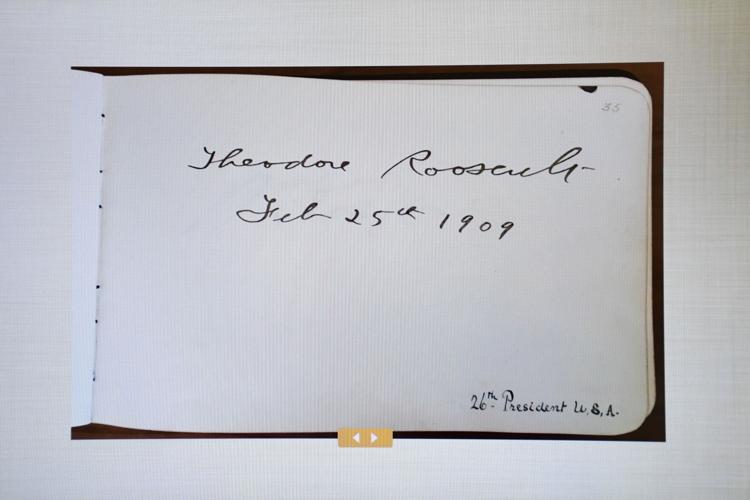 35
Theodore Roosevelt
Feb 25th 1909
26th President U.S.A.